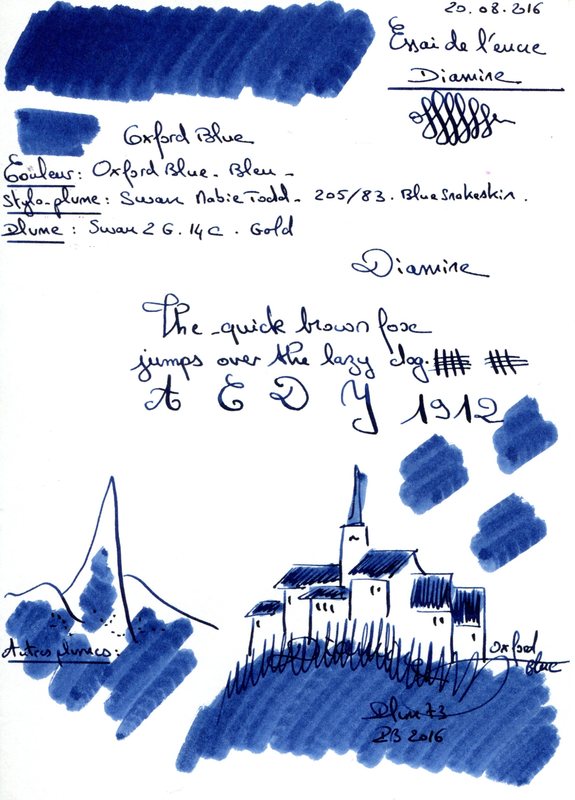 20.08.2016
Essai de l'encre
Diamine
Oxford Blue
Couleur: Oxford Blue - Bleu -
Stylo-plume: Swan Mabie Todd - 205/83. Blue Snakeskin.
Plume: Swan 2 G. 14 c. Gold
Diamine
The quick brown fox
jumps over the lazy dog.
A E D Y 1912
Autres plumes:
Oxford
Blue
2016